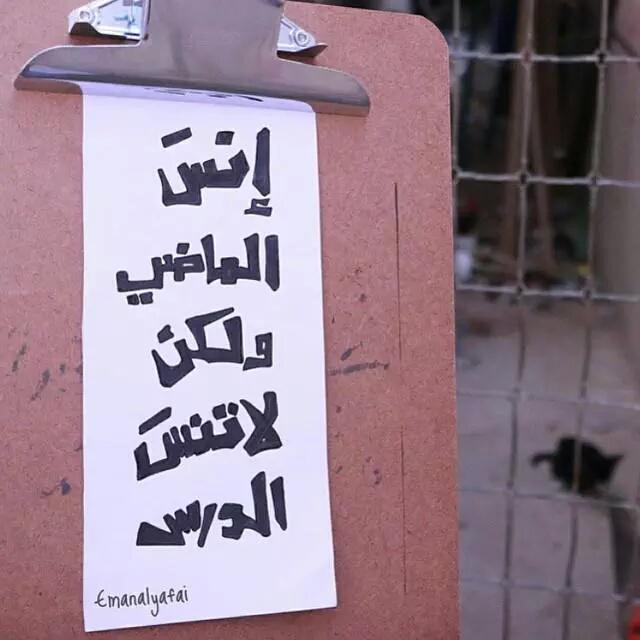 إنسَ
الماضي
ولكن
لاتنسَ
الدرس
Emanalyafai